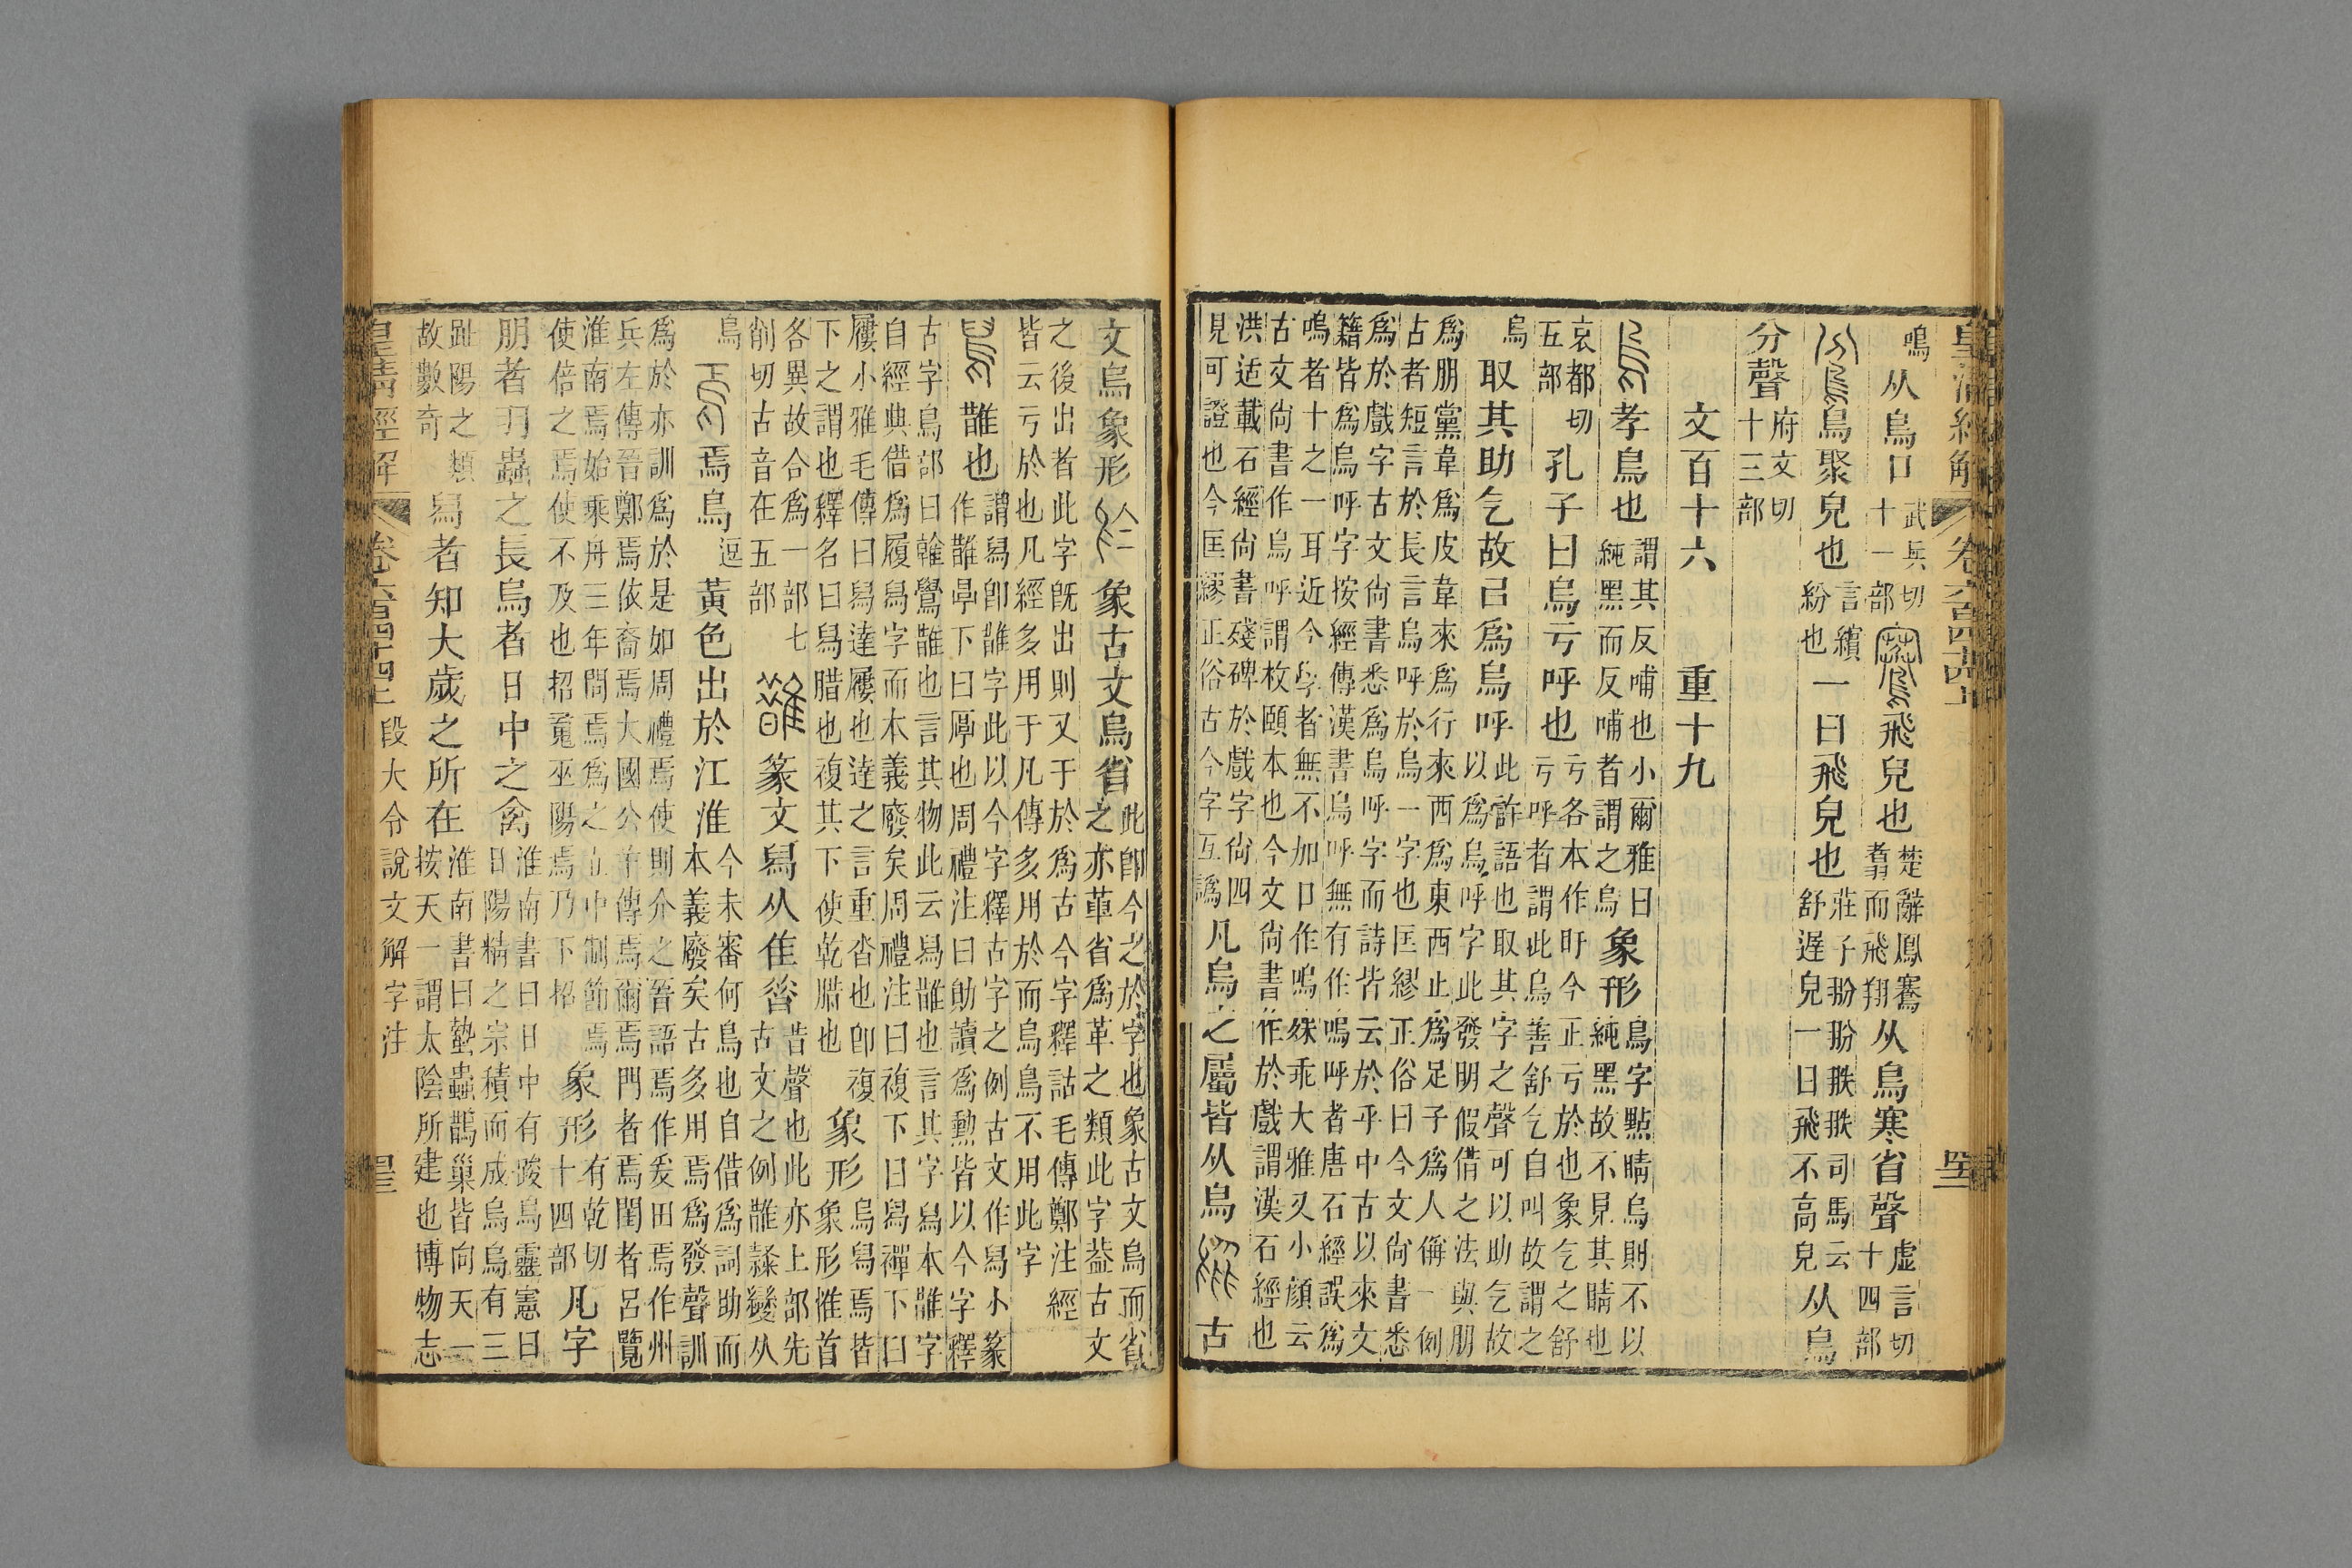 皇清經解 卷六百四十四上
鳴从鳥口武兵切十一部飛皃也楚辭鳳騫翥而飛翔从鳥寒省聲虛言切十四部
鳥聚皃也言繽紛也一曰飛皃也莊子翂翂翐翐司馬云舒遲皃一曰飛不高皃从鳥
分聲府文切十三部
文百十六 重十九
孝鳥也謂其反哺也小爾雅曰純黑而反哺者謂之烏象形鳥字點睛烏則不以純黑故不見其睛也
哀都切五部孔子曰烏亏呼也亏各本作盱今正亏於也象气之舒亏呼者謂此烏善舒气自叫故謂之
烏取其助气故㠯爲烏呼此許語也取其字之聲可以助气故以爲烏呼字此發明假借之法與朋
爲朋黨韋爲皮韋來爲行來西爲東西止爲足子爲人偁一例
古者短言於長言烏呼於烏一字也匡繆正俗曰今文尙書悉
爲於戲字古文尙書悉爲烏呼字而詩皆云於乎中古以來文
籍皆爲烏呼字按經傳漢書烏呼無有作嗚呼者唐石經誤爲
嗚者十之一耳近今學者無不加口作嗚殊乖大雅又小顏云
古文尙書作烏呼謂枚頤本也今文尙書作於戲謂漢石經也
洪适載石經尙書殘碑於戲字尙四見可證也今匡繆正俗古今字互譌凡烏之屬皆从烏古
文烏象形象古文烏省此卽今之於字也象古文烏而省之亦革省爲革之類此字葢古文
之後出者此字旣出則又于於爲古今字釋詁毛傳鄭注經
皆云亏於也凡經多用于凡傳多用於而烏鳥不用此字
舄䧿也謂舄卽䧿字此以今字釋古字之例古文作舄小篆作䧿亯下曰㫗也周禮注曰勛讀爲勳皆以今字釋
古字鳥部曰雗鷽䧿也言其物此云舄䧿也言其字舄本䧿字
自經典借爲履舄字而本義廢矣周禮注曰複下曰舄襌下曰
屨小雅毛傳曰舄達屨也達之言重沓也卽複下之謂也釋名曰舄腊也複其下使乾腊也象形烏舄焉皆象形惟首
各異故合爲一部七削切古音在五部篆文舄从隹㫺昔聲也此亦上部先古文之例䧿隸變从
鳥焉鳥逗黃色出於江淮今未審何鳥也自借爲詞助而本義廢矣古多用焉爲發聲訓
爲於亦訓爲於是如周禮焉使則介之晉語焉作爰田焉作州
兵左傳晉鄭焉依裔焉大國公羊傳焉爾焉門者焉閨者呂覽
淮南焉始乘舟三年問焉爲之立中制節焉使倍之焉使不及也招䰟巫陽焉乃下招象形有乾切十四部凡字
朋者羽蟲之長烏者日中之禽淮南書曰日中有踆烏靈憲曰日陽精之宗積而成烏烏有三
趾陽之類故數奇舄者知大歲之所在淮南書曰蟄蟲鵲巢皆向天一按天一謂太陰所建也博物志
皇清經解 卷六百四十四上 段大令說文解字注